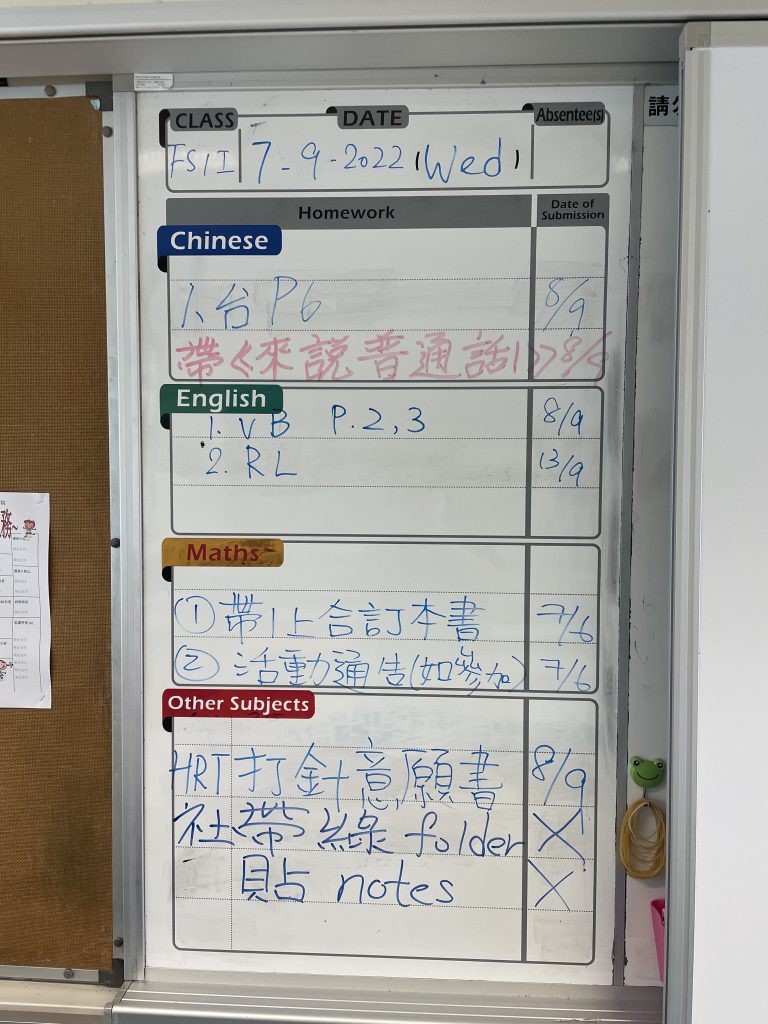 CLASS DATE Absentee(s)
7-9-2022 (Wed)
請
Homework Date of Submission
Chinese
1. 台 P6 8/9
帶《來說普通話1》 8/9
English
1. VB P.2,3 8/9
2. RL 13/9
務~
Maths
① 帶1上合訂本書 7/6
② 活動通告(如參加) 7/6
Other Subjects
HRT 打針意願書 8/9
社帶綠 folder X
貼 notes X